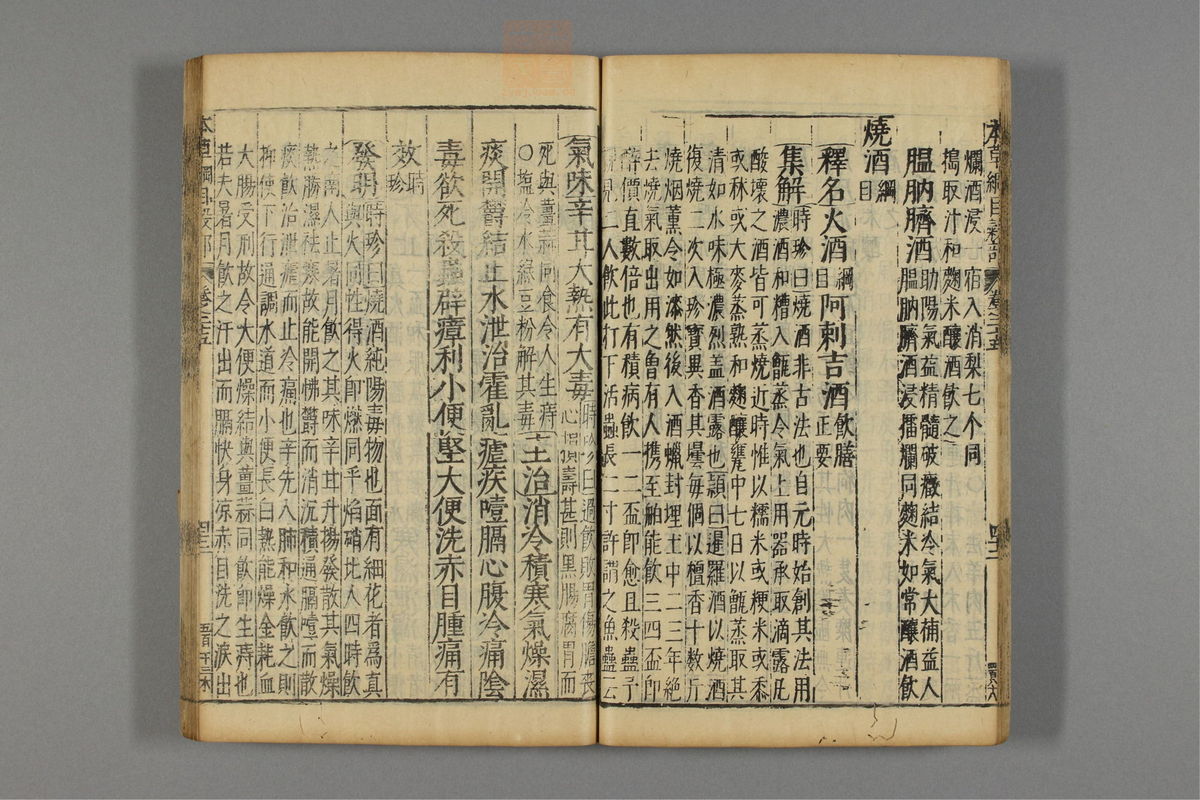 本草綱目穀部 卷二十五
爛酒浸七宿入消梨七个同
搗取汁和麴米釀酒飲之
膃肭臍酒助陽氣益精髓破癥結冷氣大補益人
膃肭臍酒浸擂爛同麴米如常釀酒飲
燒酒綱目
釋名火酒綱目阿剌吉酒飲膳正要
集解時珍曰燒酒非古法也自元時始創其法用
濃酒和糟入甑蒸令氣上用器承取滴露凡
酸壞之酒皆可蒸燒近時惟以糯米或粳米或黍
或秫或大麥蒸熟和麴釀甕中七日以甑蒸取其
清如水味極濃烈蓋酒露也頴曰暹羅酒以燒酒
復燒二次入珍寶異香其罎每個以檀香十數斤
燒烟薰令如漆然後入酒蠟封埋土中二三年絕
去燒氣取出用之曾有人携至舶能飲三四盃即
醉價直數倍也有積病飲一二盃即愈且殺蠱予
親見二人飲此打下活蟲長二寸許謂之魚蠱云
氣味辛甘大熱有大毒時珍曰過飲敗胃傷膽喪
心損壽甚則黑腸腐胃而
死與薑蒜同食令人生痔
○塩冷水綠豆粉解其毒主治消冷積寒氣燥濕
痰開鬱結止水泄治霍亂瘧疾噎膈心腹冷痛陰
毒欲死殺蟲辟瘴利小便堅大便洗赤目腫痛有
效時珍
發明時珍曰燒酒純陽毒物也面有細花者爲真
與火同性得火即燃同乎焰硝北人四時飲
之南人止暑月飲之其味辛甘升揚發散其氣燥
熱勝濕祛寒故能開怫鬱而消沉積通膈噎而散
痰飲治泄瘧而止冷痛也辛先入肺和水飲之則
抑使下行通調水道而小便長白熱能燥金耗血
大腸受刑故令大便燥結與薑蒜同飲即生痔也
若夫暑月飲之汗出而膈快身凉赤目洗之淚出
本草綱目穀部 卷二十五